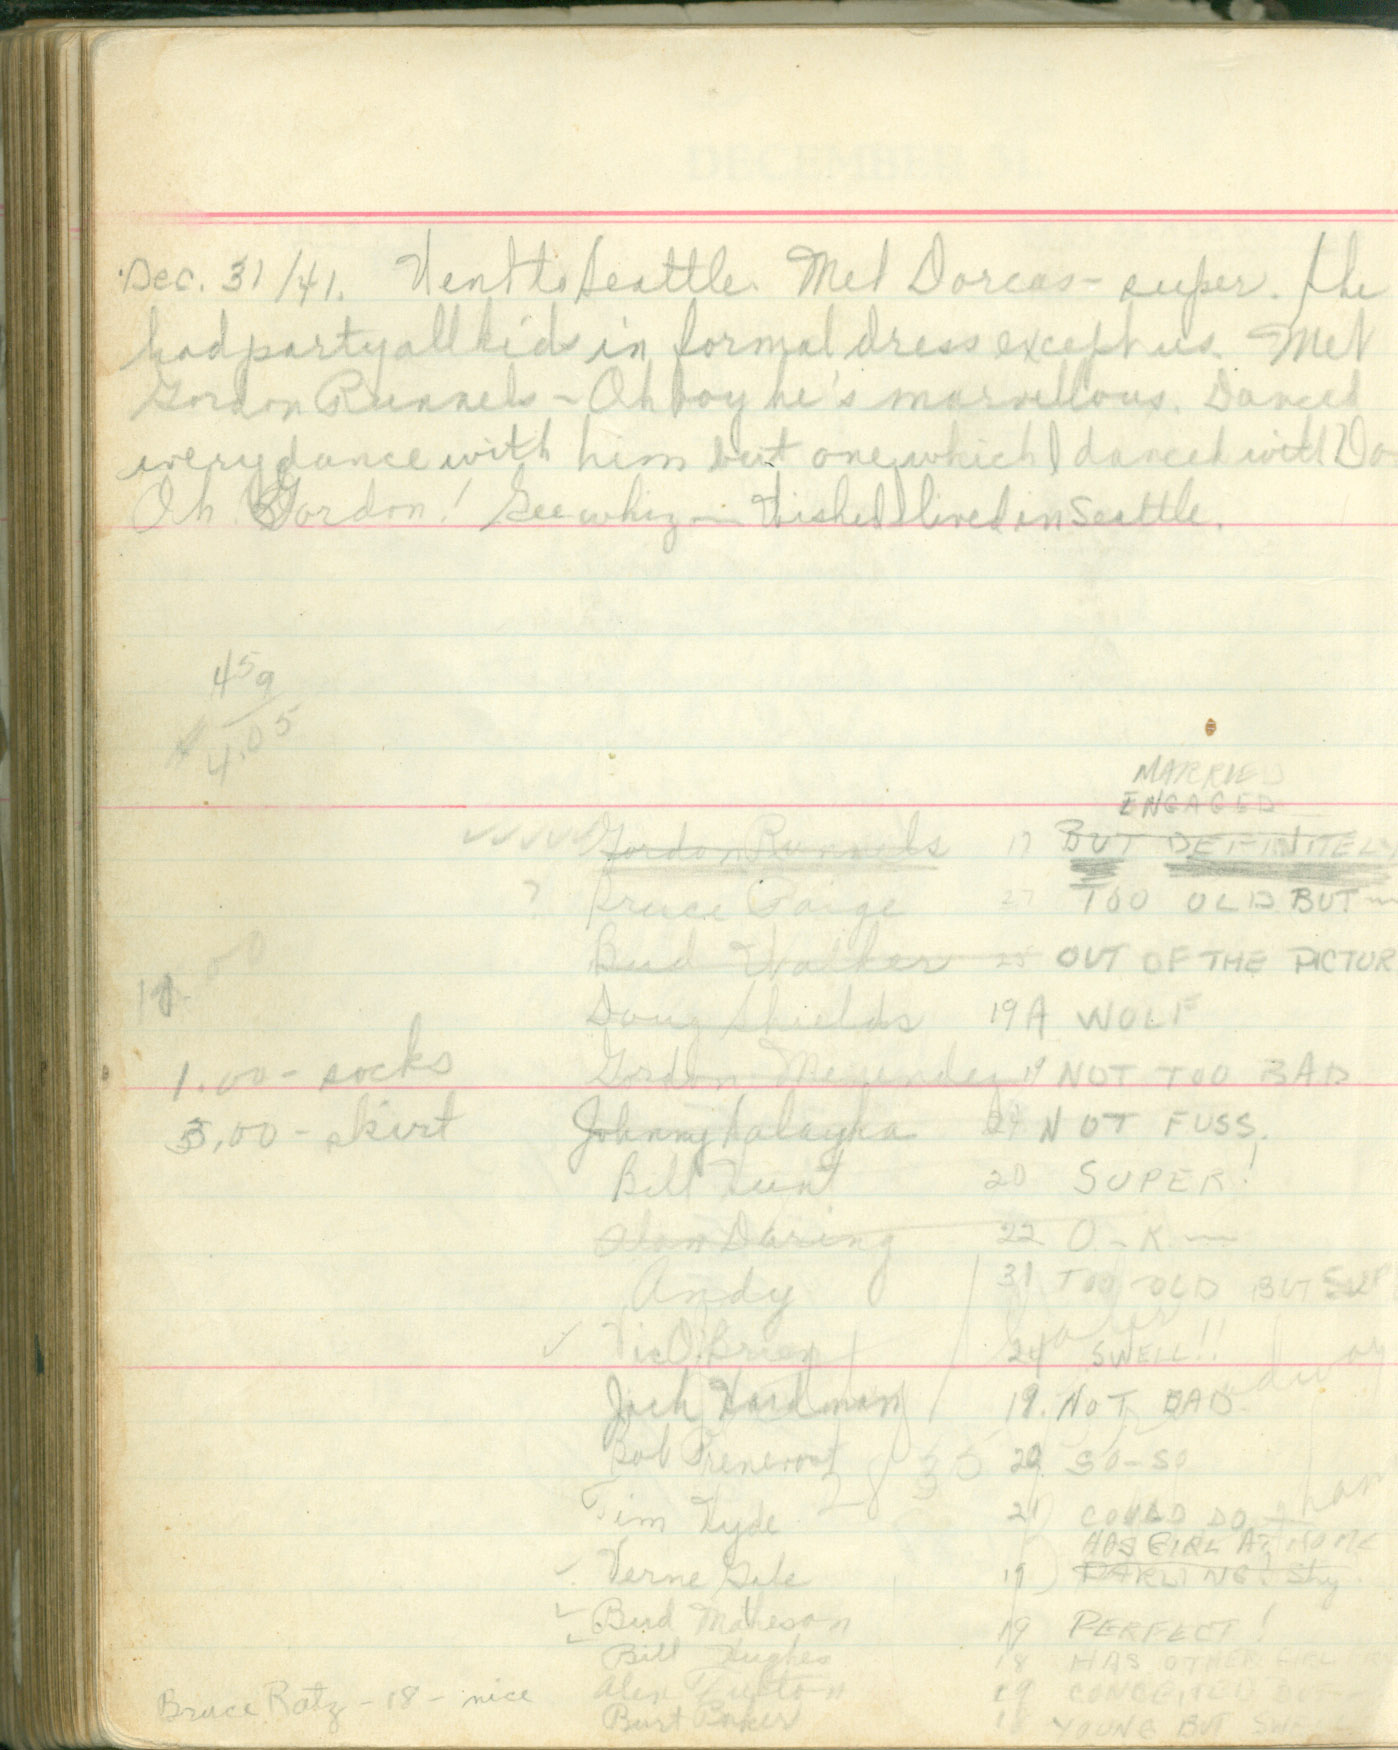 Dec. 31/41. Went to Seattle. Met Dorcas - super. She
had party all kids in formal dress except us. Met
Gordon Runnels - Oh boy he's marvellous. Danced
every dance with him but one which I danced with Do
Oh Gordon! Gee whiz — Wished I lived in Seattle.
459
4.05
MARRIED
ENGAGED
Gordon Runnels 17 BUT DEFINITELY
? Bruce Paige 27 TOO OLD BUT —
Bud Walker 25 OUT OF THE PICTUR
Doug Shields 19 A WOLF
1.00 - socks
Gordon 19 NOT TOO BAD
5.00 - skirt
Johnny 24 NOT FUSS.
Bill Hunt 20 SUPER!
Alan Daring 22 O-K —
Andy 31 TOO OLD BUT SUP
Vic O'Brien 24 SWELL!!
Jack Hardman 19. NOT BAD
Bob 20 SO-SO
Tim Hyde 21 COULD DO
HAS GIRL AT HOME
Verne Gale 19 DARLING! Shy
Bud Matheson 19 PERFECT!
Bill Hughes 18 HAS OTHER GIRL
Alex 19 CONCEITED BUT—
Bruce Ratz - 18 - nice
Burt Baker 18 YOUNG BUT